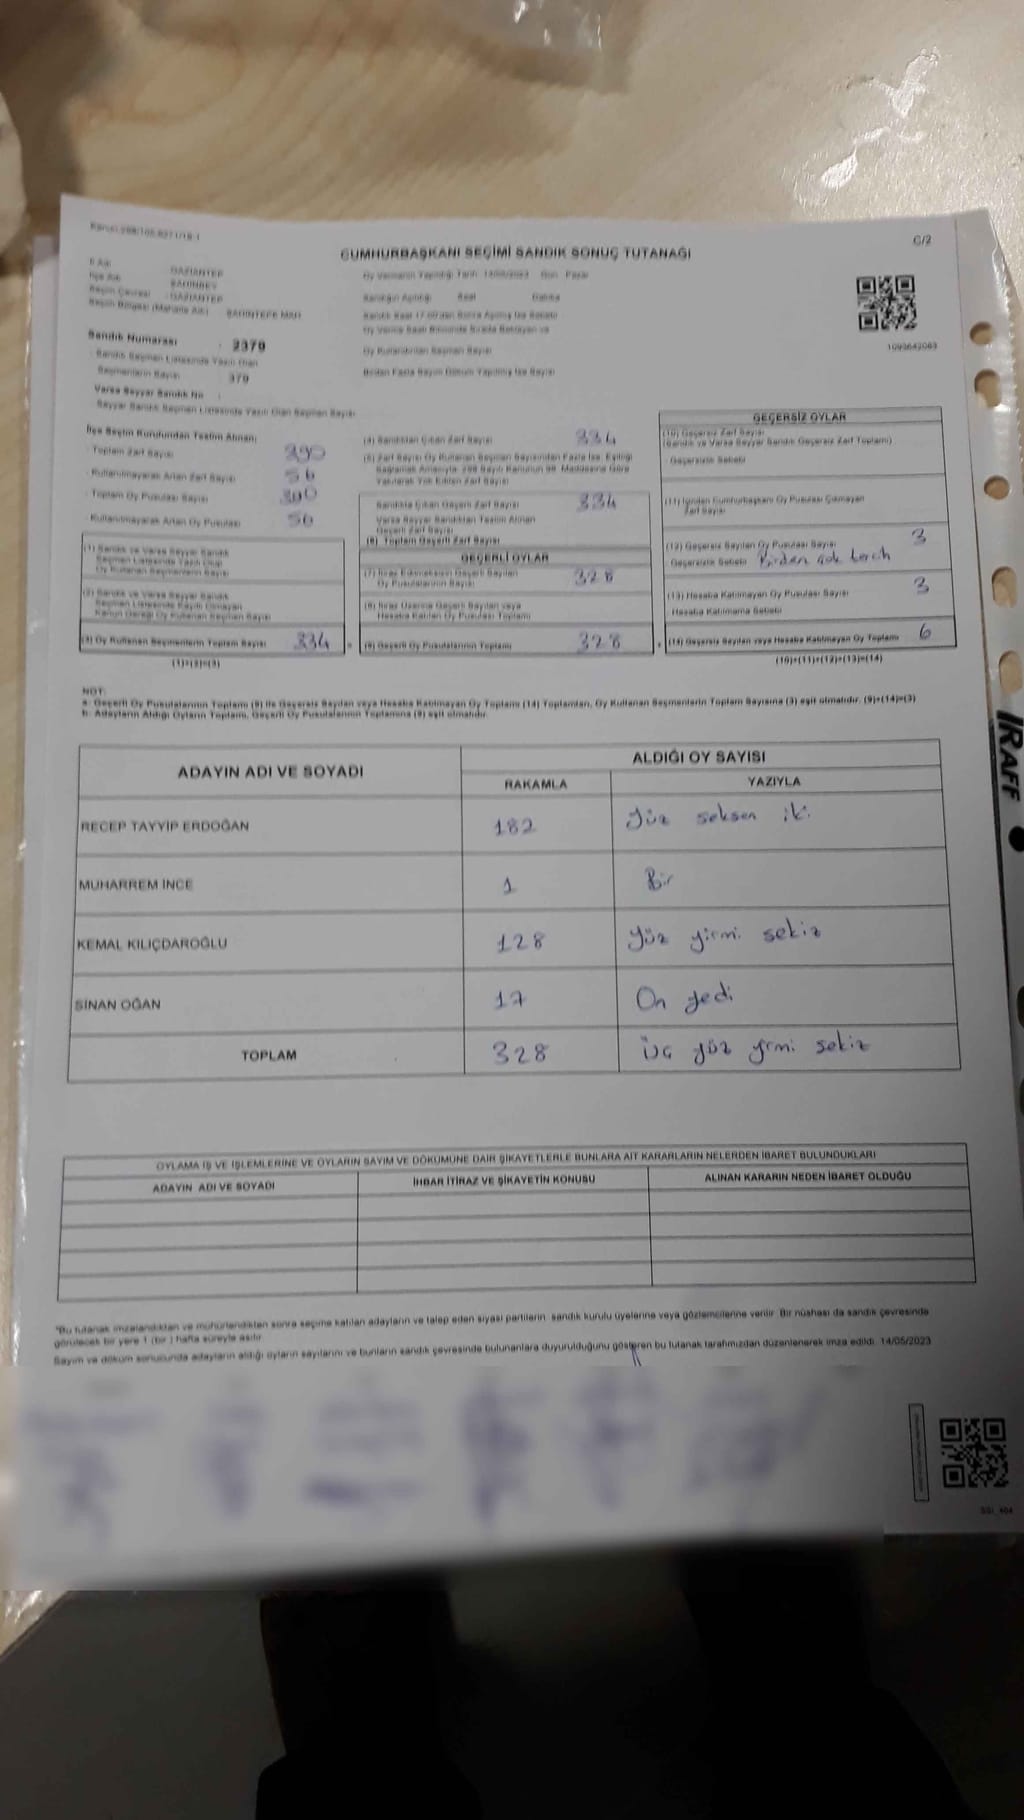 C/2
CUMHURBAŞKANI SEÇİMİ SANDIK SONUÇ TUTANAĞI
İl Adı : GAZİANTEP
İlçe Adı : ŞAHİNBEY
Seçim Çevresi : GAZİANTEP
Oy Vermenin Yapıldığı Tarih 14/05/2023 Gün Pazar
Sandığın Açıldığı Saat Dakika
Sandık Numarası : 2379
1093642063
Oy Kullandırılan Seçmen Sayısı
- Sandık Seçmen Listesinde Yazılı Olan
Seçmenlerin Sayısı 379
Birden Fazla Sayım Döküm Yapılmış İse Sayısı
Varsa Seyyar Sandık No :
Seyyar Sandık Seçmen Listesinde Yazılı Olan Seçmen Sayısı
İlçe Seçim Kurulundan Teslim Alınan;
- Toplam Zarf Sayısı 390
- Kullanılmayarak Artan Zarf Sayısı 56
- Toplam Oy Pusulası Sayısı
- Kullanılmayarak Artan Oy Pusulası
(1) Sandık ve Varsa Seyyar Sandık
Seçmen Listesinde Yazılı Olup
Oy Kullanan Seçmenlerin Sayısı
(2) Sandık ve Varsa Seyyar Sandık
Seçmen Listesinde Kayıtlı Olmayan
Kanun Gereği Oy Kullanan Seçmen Sayısı
(3) Oy Kullanan Seçmenlerin Toplam Sayısı 334
(1)+(2)=(3)
(4) Sandıktan Çıkan Zarf Sayısı 334
Sandıkta Çıkan Geçerli Zarf Sayısı 334
Varsa Seyyar Sandıktan Teslim Alınan
Geçerli Zarf Sayısı
(6) Toplam Geçerli Zarf Sayısı
GEÇERLİ OYLAR
(7) İtiraz Edilmeksizin Geçerli Sayılan
Oy Pusulalarının Sayısı 328
(8) İtiraz Üzerine Geçerli Sayılan veya
Hesaba Katılan Oy Pusulalarının Toplamı
(9) Geçerli Oy Pusulalarının Toplamı 328
GEÇERSİZ OYLAR
(10) Geçersiz Zarf Sayısı
(Sandık ve Varsa Seyyar Sandık Geçersiz Zarf Toplamı)
- Geçersizlik Sebebi
(11) İçinden Cumhurbaşkanı Oy Pusulası Çıkmayan
Zarf Sayısı
(12) Geçersiz Sayılan Oy Pusulası Sayısı 3
Geçersizlik Sebebi Birden çok tercih
(13) Hesaba Katılmayan Oy Pusulası Sayısı 3
Hesaba Katılmama Sebebi
(14) Geçersiz Sayılan veya Hesaba Katılmayan Oy Toplamı 6
(10)+(11)+(12)+(13)=(14)
NOT:
a- Geçerli Oy Pusulalarının Toplamı (9) ile Geçersiz Sayılan veya Hesaba Katılmayan Oy Toplamı (14) Toplamları, Oy Kullanan Seçmenlerin Toplam Sayısına (3) eşit olmalıdır. (9)+(14)=(3)
b- Adayların Aldığı Oyların Toplamı, Geçerli Oy Pusulalarının Toplamına (9) eşit olmalıdır.
ADAYIN ADI VE SOYADI ALDIĞI OY SAYISI
RAKAMLA YAZIYLA
RECEP TAYYİP ERDOĞAN 182 Yüz seksen iki
MUHARREM İNCE 1 Bir
KEMAL KILIÇDAROĞLU 128 Yüz yirmi sekiz
SİNAN OĞAN 17 On yedi
TOPLAM 328 üç yüz yirmi sekiz
OYLAMA İŞ VE İŞLEMLERİNE VE OYLARIN SAYIM VE DÖKÜMÜNE DAİR ŞİKAYETLERLE BUNLARA AİT KARARLARIN NELERDEN İBARET BULUNDUKLARI
ADAYIN ADI VE SOYADI İHBAR İTİRAZ VE ŞİKAYETİN KONUSU ALINAN KARARIN NEDEN İBARET OLDUĞU
*Bu tutanak imzalandıktan ve mühürlendikten sonra seçime katılan adayların ve talep eden siyasi partilerin sandık kurulu üyelerine veya gözlemcilerine verilir. Bir nüshası da sandık çevresinde
görülecek bir yere 1 (bir) hafta süreyle asılır.
Sayım ve döküm sonucunda adayların aldığı oyların sayılarını ve bunların sandık çevresinde bulunanlara duyurulduğunu gösteren bu tutanak tarafımızdan düzenlenerek imza edildi. 14/05/2023
RAFF